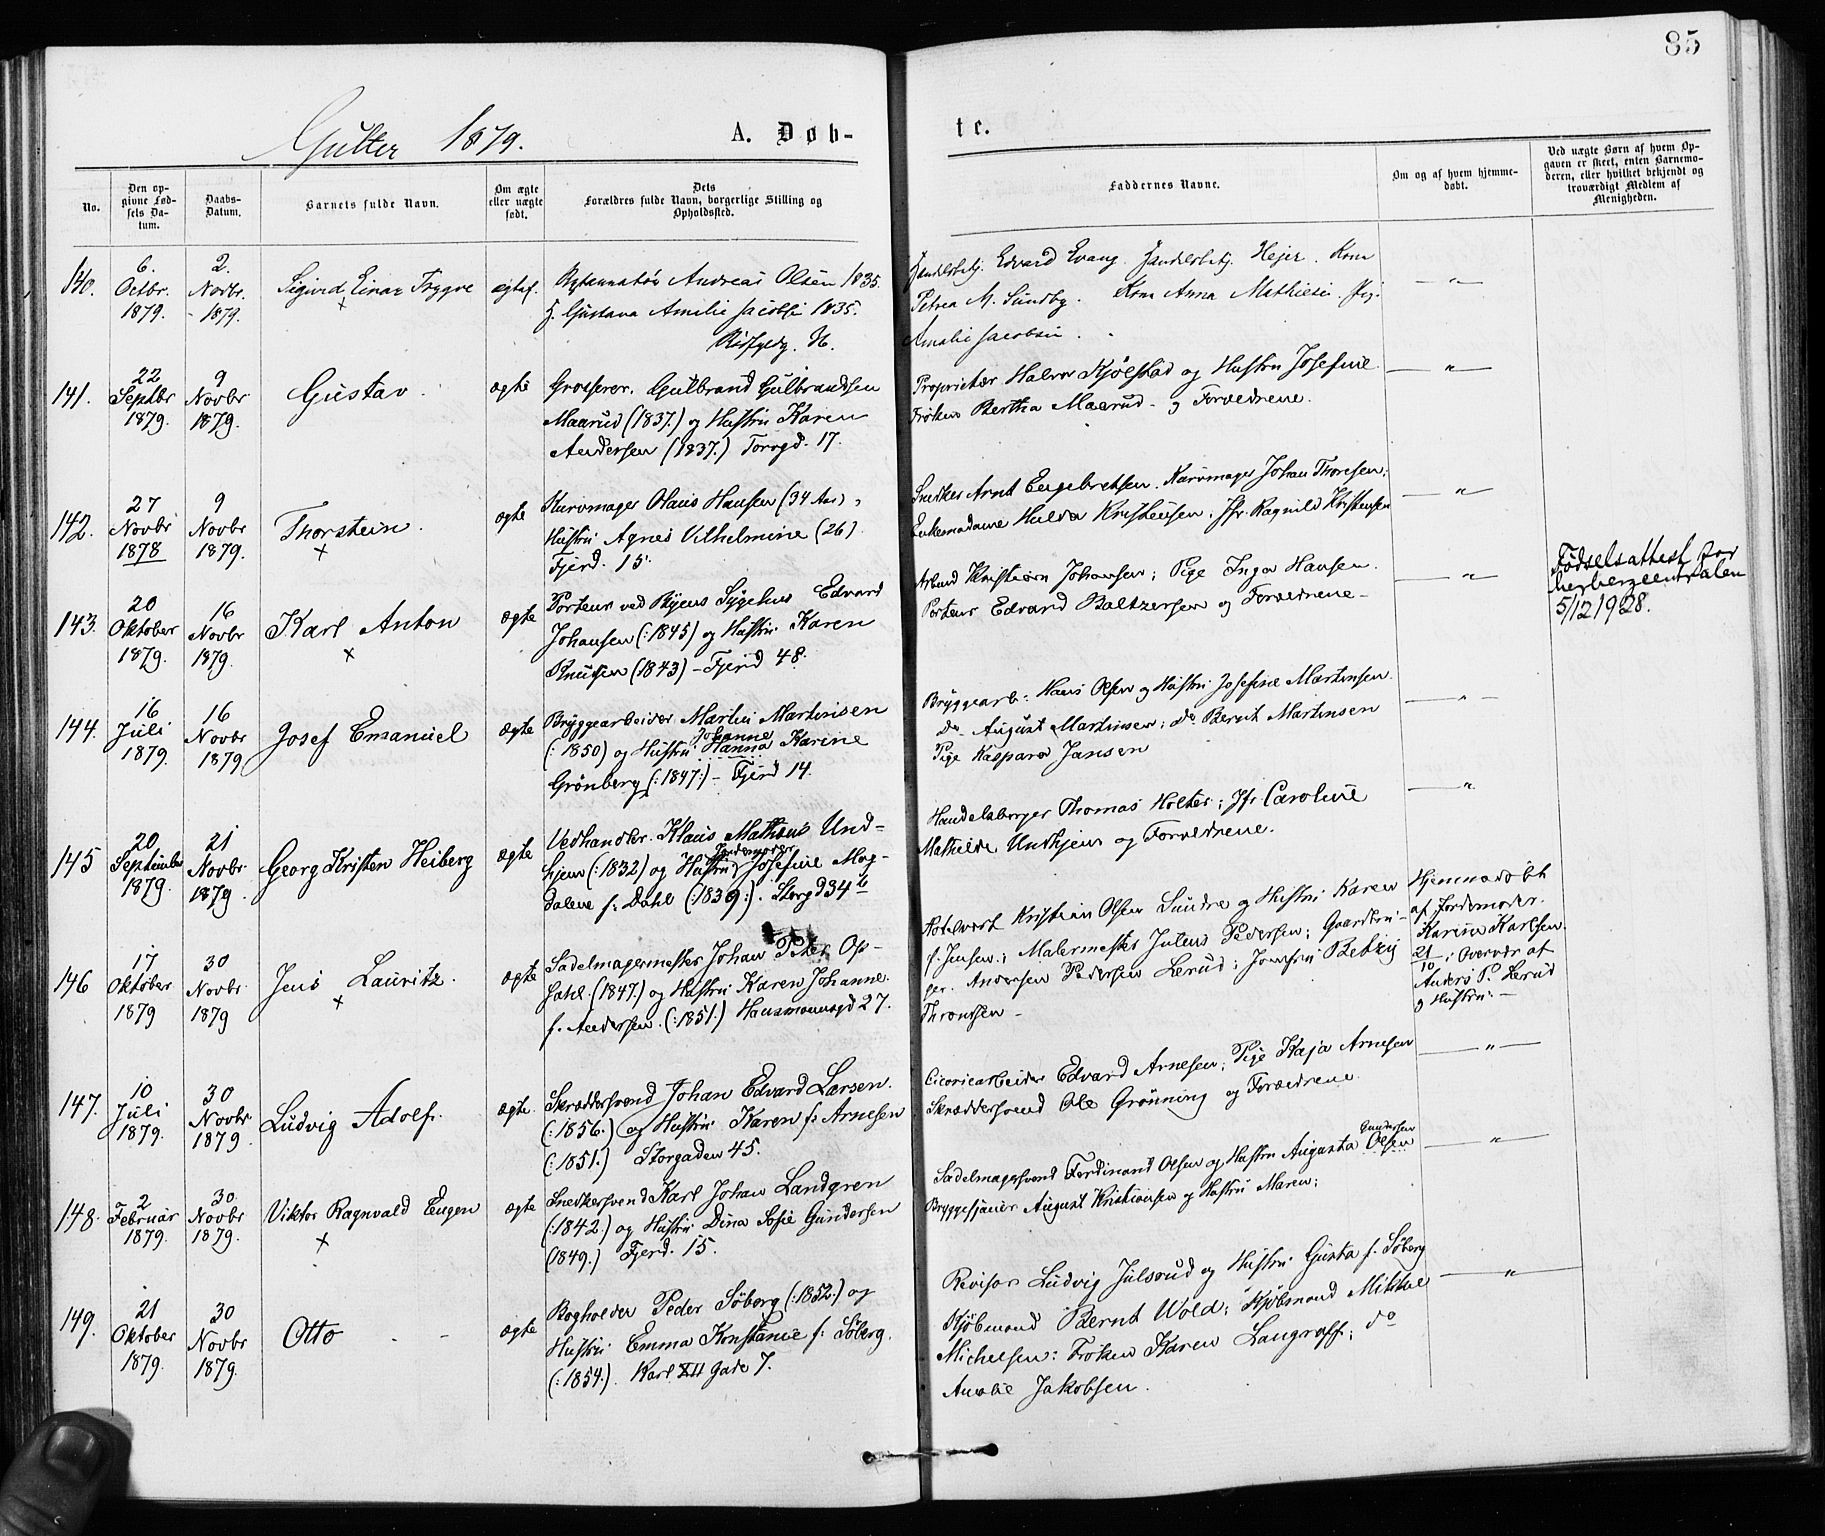 85
Gutter 1879.
A. Døb-
te.
No.
Den op-
givne Fød-
sels Da-
tum.
Daabs-
Datum.
Barnets fulde Navn.
Om ægte
eller uægte
født.
Dets
Forældres fulde Navn, borgerlige Stilling og
Opholdssted.
Faddernes Navne.
Om og af hvem hjemme-
døbt.
Ved uægte Børn af hvem Op-
gaven er skeet, enten Barnemo-
deren, eller hvilket bekjendt og
troværdigt Medlem af
Menigheden.
140.
6.
Octbr.
1879.
2.
Novbr.
1879.
Sigurd Einar Trygve
×
Andreas Olsen 1835.
Gustava Amilie Jacobsen 1835.
Handelsbetj. Edvard Evang. Handelsbetj. Hejer. Kone
Petrea M. Sundby. Kone Anna Mathiesen. Pig.
Amalie Jacobsen.
—"—
141.
22
Septbr
1879.
9
Novbr
1879.
Gustav.
ægte
Grosserer. Gulbrand Gulbrandsen
Maarud (1837.) og Hustru Karen
Andersen (1837.) Torvgd. 17.
Proprietær Halvor Kjølstad og Hustru Josefine
Frøken Bertha Maarud - og Forældrene.
—"—
142.
27
Novbr
1878
9
Novbr
1879.
Thorstein.
×
ægte
Kurvmager Olaus Hansen (34 Aar),
Hustru Agnes Vilhelmine (26)
Fjerd. 15.
Snedker Arnt Engebretsen. Kurvmager Johan Thoresen;
Enkemadame Hulda Kristensen. Jfr. Ragnild Kristensen
—"—
143.
20
Oktober
1879.
16
Novbr
1879.
Karl Anton
×
ægte
Porteur ved Byens Sygehus Edvard
Johansen (:1845) og Hustru Karen
Knutsen (1843) - Fjerd 48.
Arbmd Kristian Johansen; Pige Inga Hansen.
Porteur Edvard Baltzersen og Forældrene -
—"—
Fødselsattest for
herbergcentralen
5/12 1928.
144.
16
Juli
1879.
16
Novbr
1879
Josef Emanuel
ægte
Bryggearbeider Martin Martinsen
Johanne
(:1850) og Hustru Hanna Karine
Grönberg (:1847:) - Fjerd 14.
Bryggearb: Hans Olsen og Hustru Josefine Martinsen.
do August Martinsen; do Bernt Martinsen
Pige Kaspara Jansen
—"—
145
20
September
1879.
21
Novbr
1879.
Georg Kristen Heiberg
ægte
Vedhandler. Klaus Mathæus Und-
Jordemoder
hjem (:1832) og Hustru Josefine Mag-
dalene f: Dahl (:1839:). Storgd 34 b
Handelsborger Thomas Holter; Jfr Caroline
Mathilde Undhjem og Forældrene.
—"—
146
17
Oktober
1879
30
Novbr
1879
Jens Lauritz.
×
ægte
Sadelmagermester Johan Peter Op-
sahl. (1847.) og Hustru Karen Johanne
f. Andersen. (:1851.) Hausmannsgd 27.
Kristian Olsen Sundre og Hustru Karen
f. Jensen; Malermester Julius Pedersen; Gaardbru-
ger. Andersen Pedersen Lerud; Jomfru Betzy
Throndsen -
Hjemmedøbt
af Jordemoder.
Karine Karlsen.
21/10; Overvær af
Anders P. Lerud
og Hustru. -
147.
10
Juli
1879.
30
Novbr
1879.
Ludvig Adolf.
ægte.
Skræddersvend Johan Edvard Larsen.
(:1856.) og Hustru Karen f: Arnesen
(:1851.) Storgaden 45.
Cicoriearbeider Edvard Arnesen; Pige Kaja Arnesen
Skræddersvend Ole Grönning og Forældrene
—"—
148.
2
Februar
1879.
30
Novbr
1879.
Viktor Ragnvald Eugen
×
ægte
Snedkersvend Karl Johan Landgren
(:1842.) og Hustru Dina Sofie Gundersen
(1849.) Fjerd. 15.
Gundersen
Sadelmagersvend Ferdinand Olsen og Hustru Augusta Olsen
Bryggesjauer August Kristiansen og Hustru Maren;
—"—
149.
21
Oktober
1879.
30
Novbr
1879.
Otto - -
ægte
Bogholder Peder Söberg (:1852.) og
Hustru Emma Konstance f: Söberg.
(:1854.) Karl XII Gade 7.
Revisor Ludvig Julsrud og Hustru Gusta f. Söberg
Kjöbmand Bernt Wold; Kjöbmand Mikkel
Michelsen: Fröken Karen Langraff; do
Amalie Jakobsen.
—"—